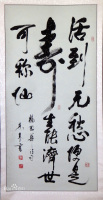 活到无愁便是
寿生能济世
可称仙